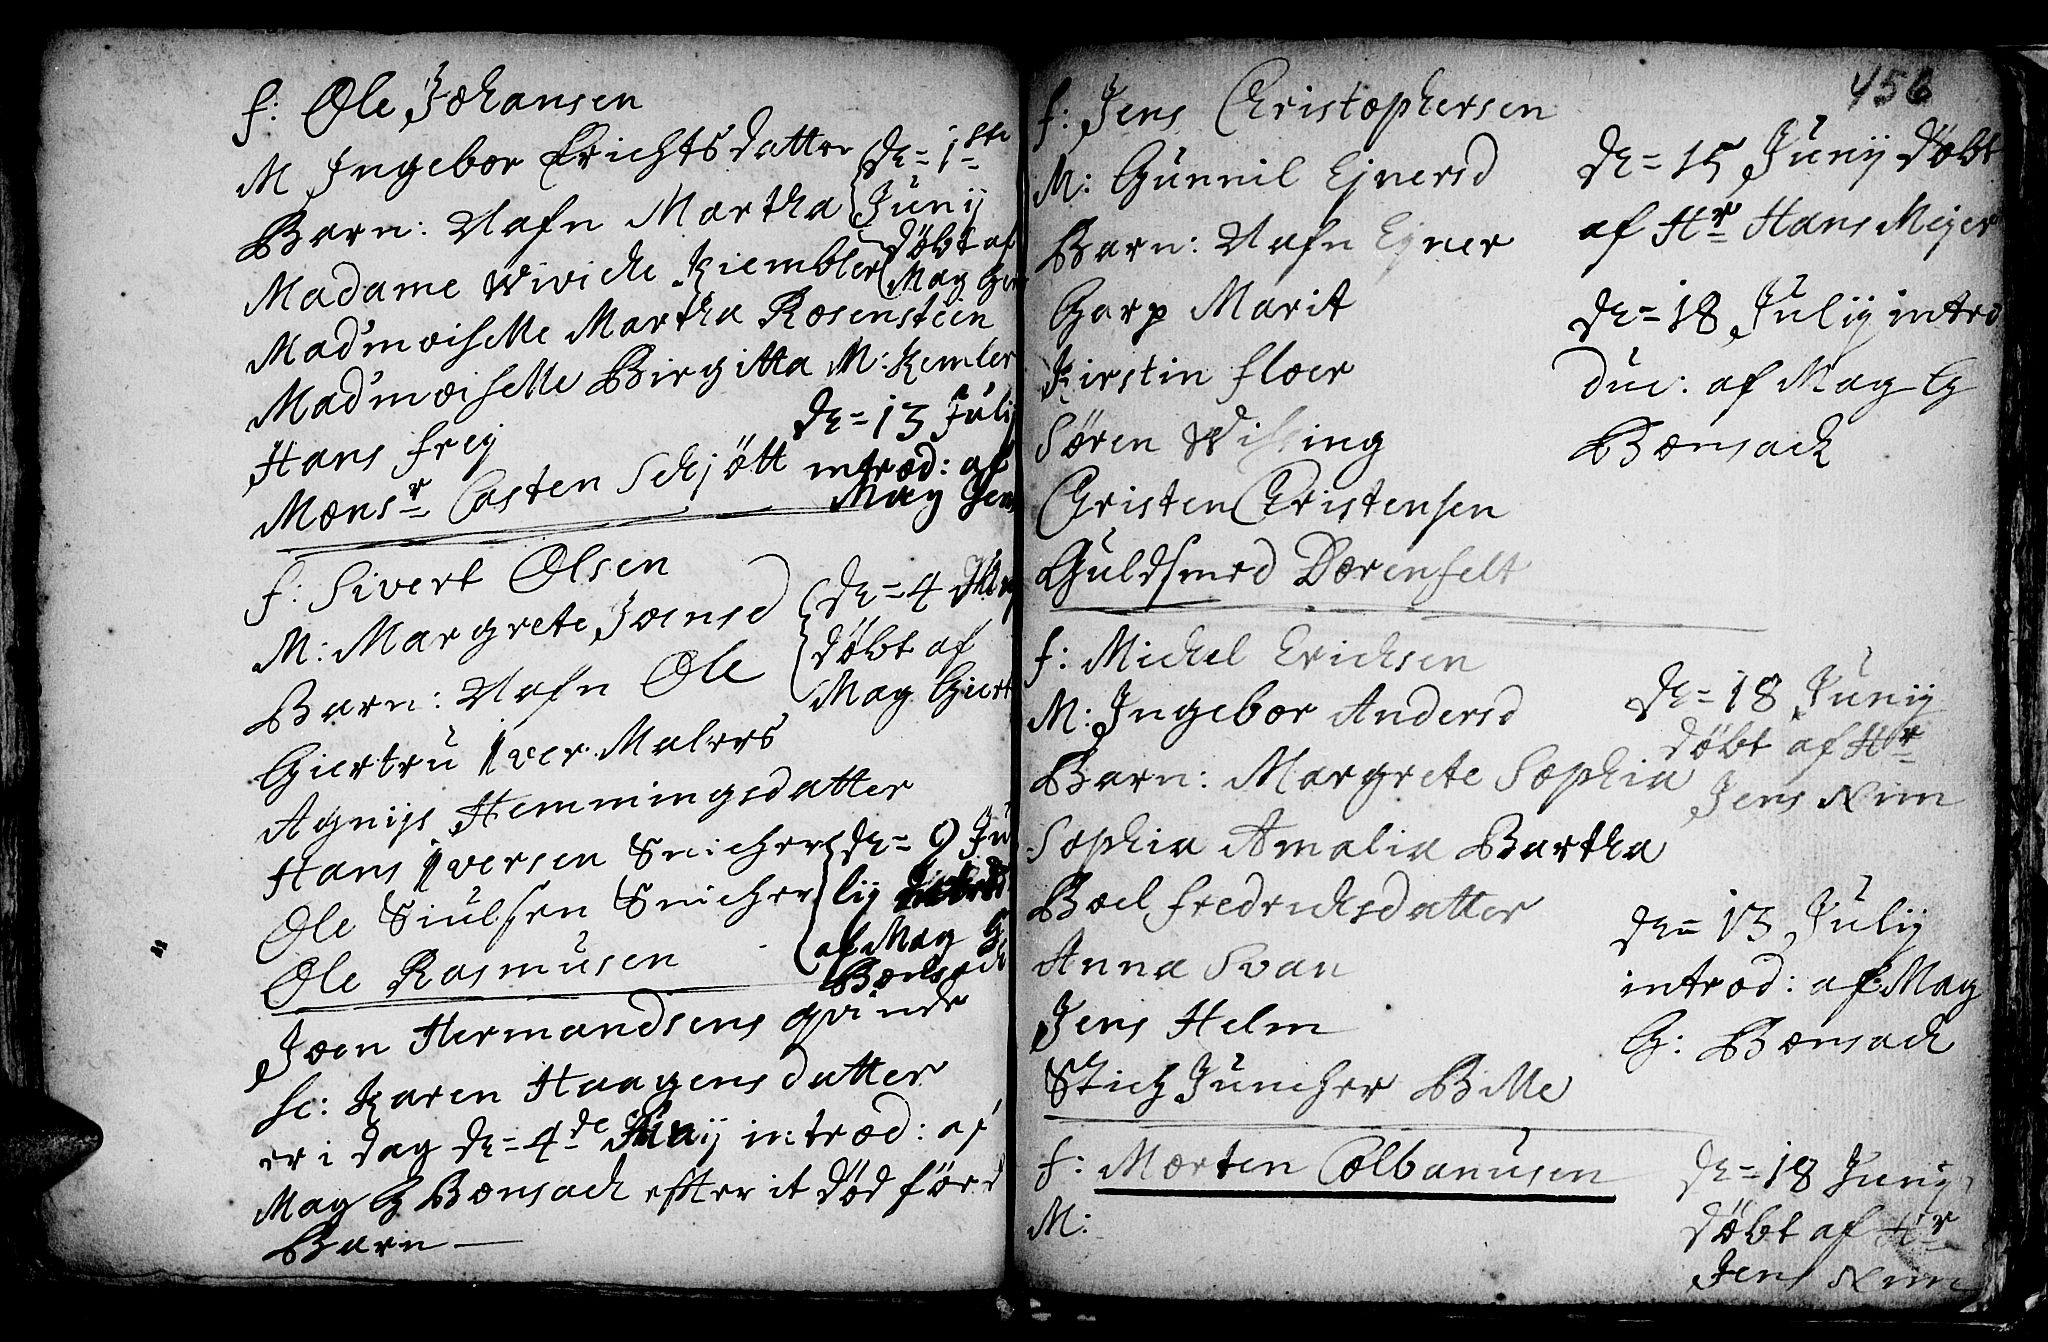 f: Ole Johansen
M Ingebor Erichtsdatter
Barn: Nafn Martha
de= 1ste
Junij
døbt af
Mag Ger
Madame Wiviche Kiembler
Mad'moiselle Martha Rosensteen
Mad'moiselle Birgitta M: Kemler
Hans Frej
Monsr Casten Schjøtt
de= 13 Julij
introd: af
Mag Ger
f: Sivert Olsen
M: Margrete Joensd
Barn: Nafn Ole
de= 4
døbt af
Mag Giert
Giertru Iver Malers
Agnijs Hemmingsdatter
Hans Iversen Snicher
Ole Siulsen Snicher
Ole Rasmusen
de= 9 Ju
lij introd
af Mag G
Bonsach
Joen Hermandsens qvinde
sc: Karen Haagensdatter
er i dag de= 4de introd: af
Mag G Bonsach efter it død føed
Barn
456
f: Jens Christophersen
M: Gunnil Ejnersd
Barn: Nafn Ejner
Garp Marit
Kirstin Floer
Søren
Christen Christensen
Guldsmed Dorenfelt
de= 15 Junij døbt
af Hr Hans Mejer
de= 18 Julij intro
duc: af Mag G
Bonsach
f: Michel Erichsen
M: Ingebor Andersd
Barn: Margrete Sophia
Sophia Amalia Bartha
Boel Fredrichsdatter
Anna Svan
Jens Helm
Stich Juncher Bille
de= 18 Junij
døbt af Hr
Jens
de= 13 Julij
introd: af Mag
G: Bonsach
f: Morten Colbanusen
M:
de= 18 Junij
døbt af Hr
Jens